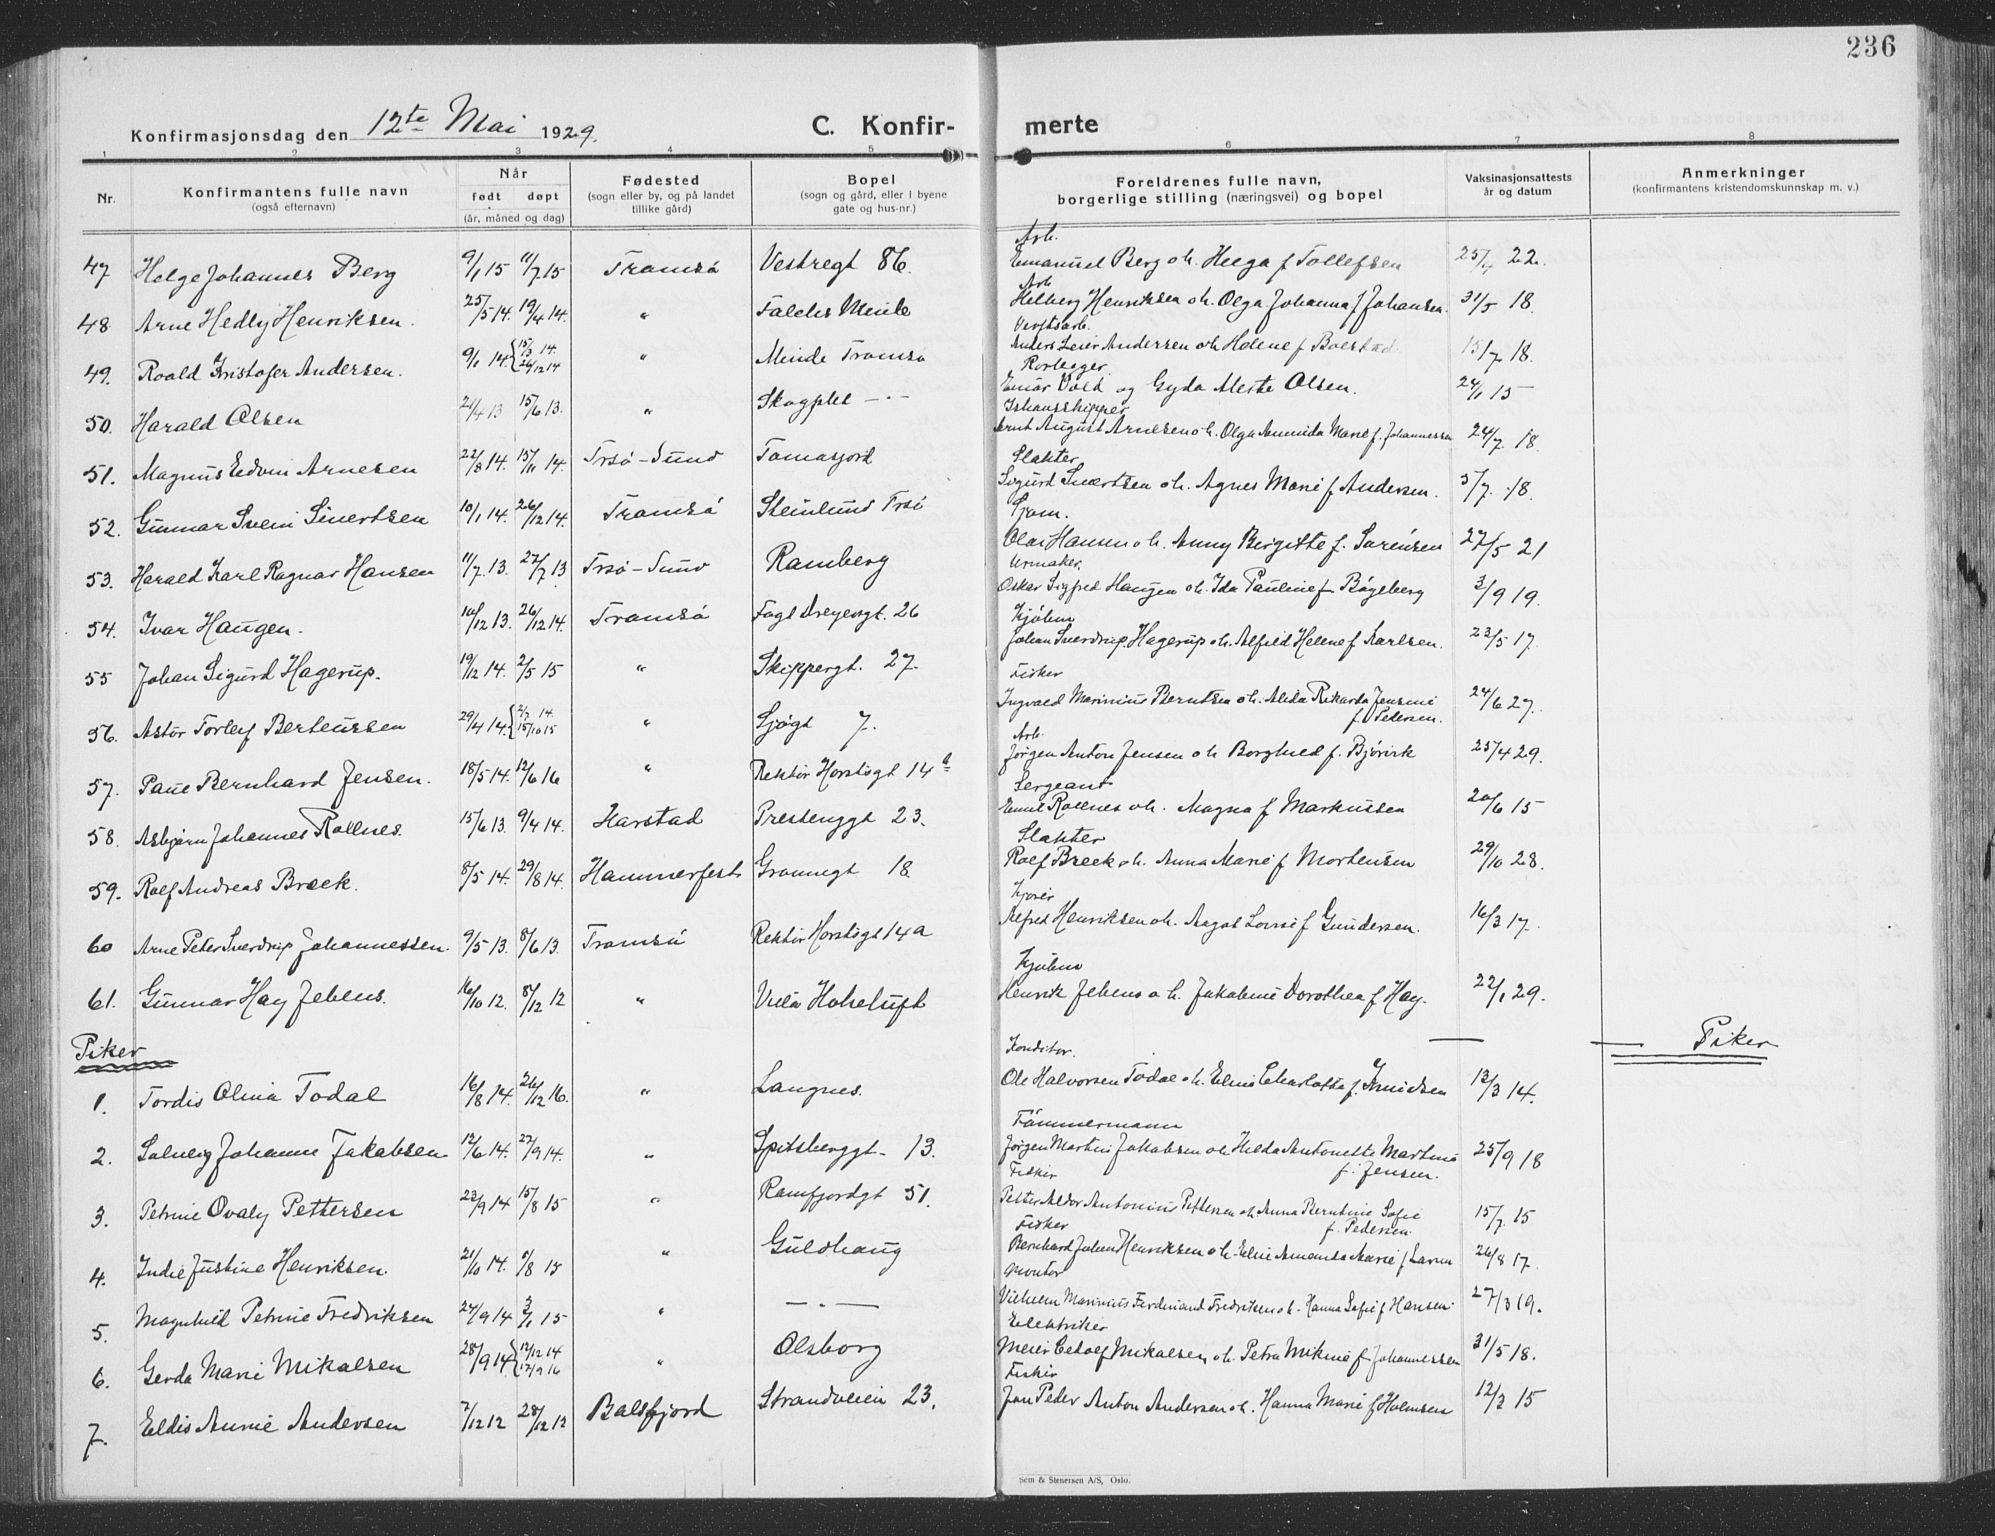 236
Konfirmasjonsdag den 12te Mai 1929.
C. Konfir-
merte
1 2 3 4 5 6 7 8
Nr.
Konfirmantens fulle navn
(også efternavn)
Når
født døpt
(år, måned og dag)
Fødested
(sogn eller by, og på landet
tillike gård)
Bopel
(sogn og gård, eller i byene
gate og hus-nr.)
Foreldrenes fulle navn,
borgerlige stilling (næringsvei) og bopel
Vaksinasjonsattests
år og datum
Anmerkninger
(konfirmantens kristendomskunnskap m. v.)
Arb.
47 Helge Johannes Berg 9/1 15 11/7 15 Tromsø Vestregt 86. Emanuel Berg o h. Helga f Tollefsen 25/4 22.
Arb
48 Arne Hedly Henriksen. 25/5 14. 19/4 14. " Henriksen o h. Olga Johanna f Johansen. 31/5 18.
Verftsarb.
49. Roald Kristofer Andersen. 9/1 14 { 15/3 14. 26/12 14 " Minde Tromsø Anders Andersen o h Helene f Bolstad. 15/7 18.
Rørlegger.
50. Harald Olsen 21/4 13 15/6 13. " Einar Vold og Gyda Merte Olsen. 24/1 15
Ishavsskipper
51. Magnus Edvin Arnesen 22/8 14. 15/11 14. Trsø-Sund Tomasjord Arnt August Arnesen o h. Olga Marie f. Johannessen 24/7 18
Slakter
52. Gunnar Svein Sivertsen 10/1 14. 26/12 14. Tromsø Steinlund Trsø Sigurd Sivertsen o h. Agnes Marie f Andersen. 5/7 18.
Sjøm.
53. Harald Karl Ragnar Hansen 11/7. 13. 27/7 13 Trsø-Sund Ramberg Olai Hansen o h. Anny Birgitte f. Sørensen 27/5 21
Urmaker.
54. Ivar Haugen. 10/12 13. 26/12 14. Tromsø Fogd Dreyersgt. 26 Oskar Sigfred Haugen o h. Ida Pauline f Bøgeberg 3/9 19.
Kjøbm
55 Johan Sigurd Hagerup. 19/12 14. 2/5 15 " Skippergt. 27. Johan Sverdrup Hagerup o h. Alfhild Helene f Karlsen. 23/5 17.
Fisker
56. Astor Torleif Berteussen 29/4 14. { 2/7 14. 15/10 15 " Sjøgt 7. Ingvald Marinius Berntsen o h. Alida Rikarda Jensine
f. Pedersen. 24/6 27.
Arb.
57. Paul Bernhard Jensen. 18/5 14. 12/6 16 " Rektor Horstsgt 14 a Jørgen Anton Jensen o h Borghild f. Bjørvik 25/4 29.
Sergeant
58. Asbjørn Johannes Rollnes. 15/6 13. 9/4 14. Harstad Prestenggt 23. Emil Rollnes o h. Magna f Markussen 20/6 15
Slakter
59. Rolf Andreas Bræck. 8/5 14. 29/8 14. Hammerfest Grønnegt 18 Rolf Breck o h. Anna Marie f Mortensen 29/10 28.
60 Arne Peter Sverdrup Johannessen. 9/5 13. 8/6 13. Tromsø Rektor Horstsgt 14a Alfred Henriksen o h. Aagot Lovise f Gundersen. 16/3 17.
Kjøbm
61. Gunnar Hay Jebens. 16/10 12. 8/12 12 " Villa Hoheluft Henrik Jebens o h. Jakobine Dorothea f Hay. 22/1 29.
Piker
Piker
Konditor.
1. Tordis Olivia Todal 16/8 14. 26/12 16. " Langnes. Ole Halvorsen Todal o h. Charlotte f. Knudsen 13/3 14.
Tømmermann
2. Solveig Johanne Jakobsen 12/6 14. 27/9 14. " Spitsberggt- 13. Jørgen Martin Jakobsen o h Hilda Antonette Martine
f. Jensen. 25/9 18
Fisker
3. Petrine Ovaly Pettersen 23/9 14 15/8 15 " Ramfjordgt 51. Petter Aldor Antonius Pettersen o h Anna Berntine Sofie
f. Pedersen. 15/7. 15
Fisker
4. Indie Justine Henriksen. 21/10 14. 1/8 15 " Guldhaug Bernhard Johan Henriksen o h. Amanda Marie f 26/8 17.
Montør
5. Magnhild Petrine Fredriksen 24/9 14 3/1 15 " — . — Vilhelm Marinius Ferdinand Fredriksen o h. Hanna Sofie f Hansen. 27/3 19.
Elektriker
6. Gerda Marie Mikalsen 28/9 14 { 12/12 14 17/9 16 " Olsborg Meier Mikalsen o h. Petra Mikine f Johannessen 31/5 18.
Fisker
7. Eldis Annie Andersen 7/12 12 28/12 12 Balsfjord Strandveien 23. Jan Peder Anton Andersen o h. Hanna Marie f Holmsen 12/3 15
Sem & Stenersen A/S, Oslo.